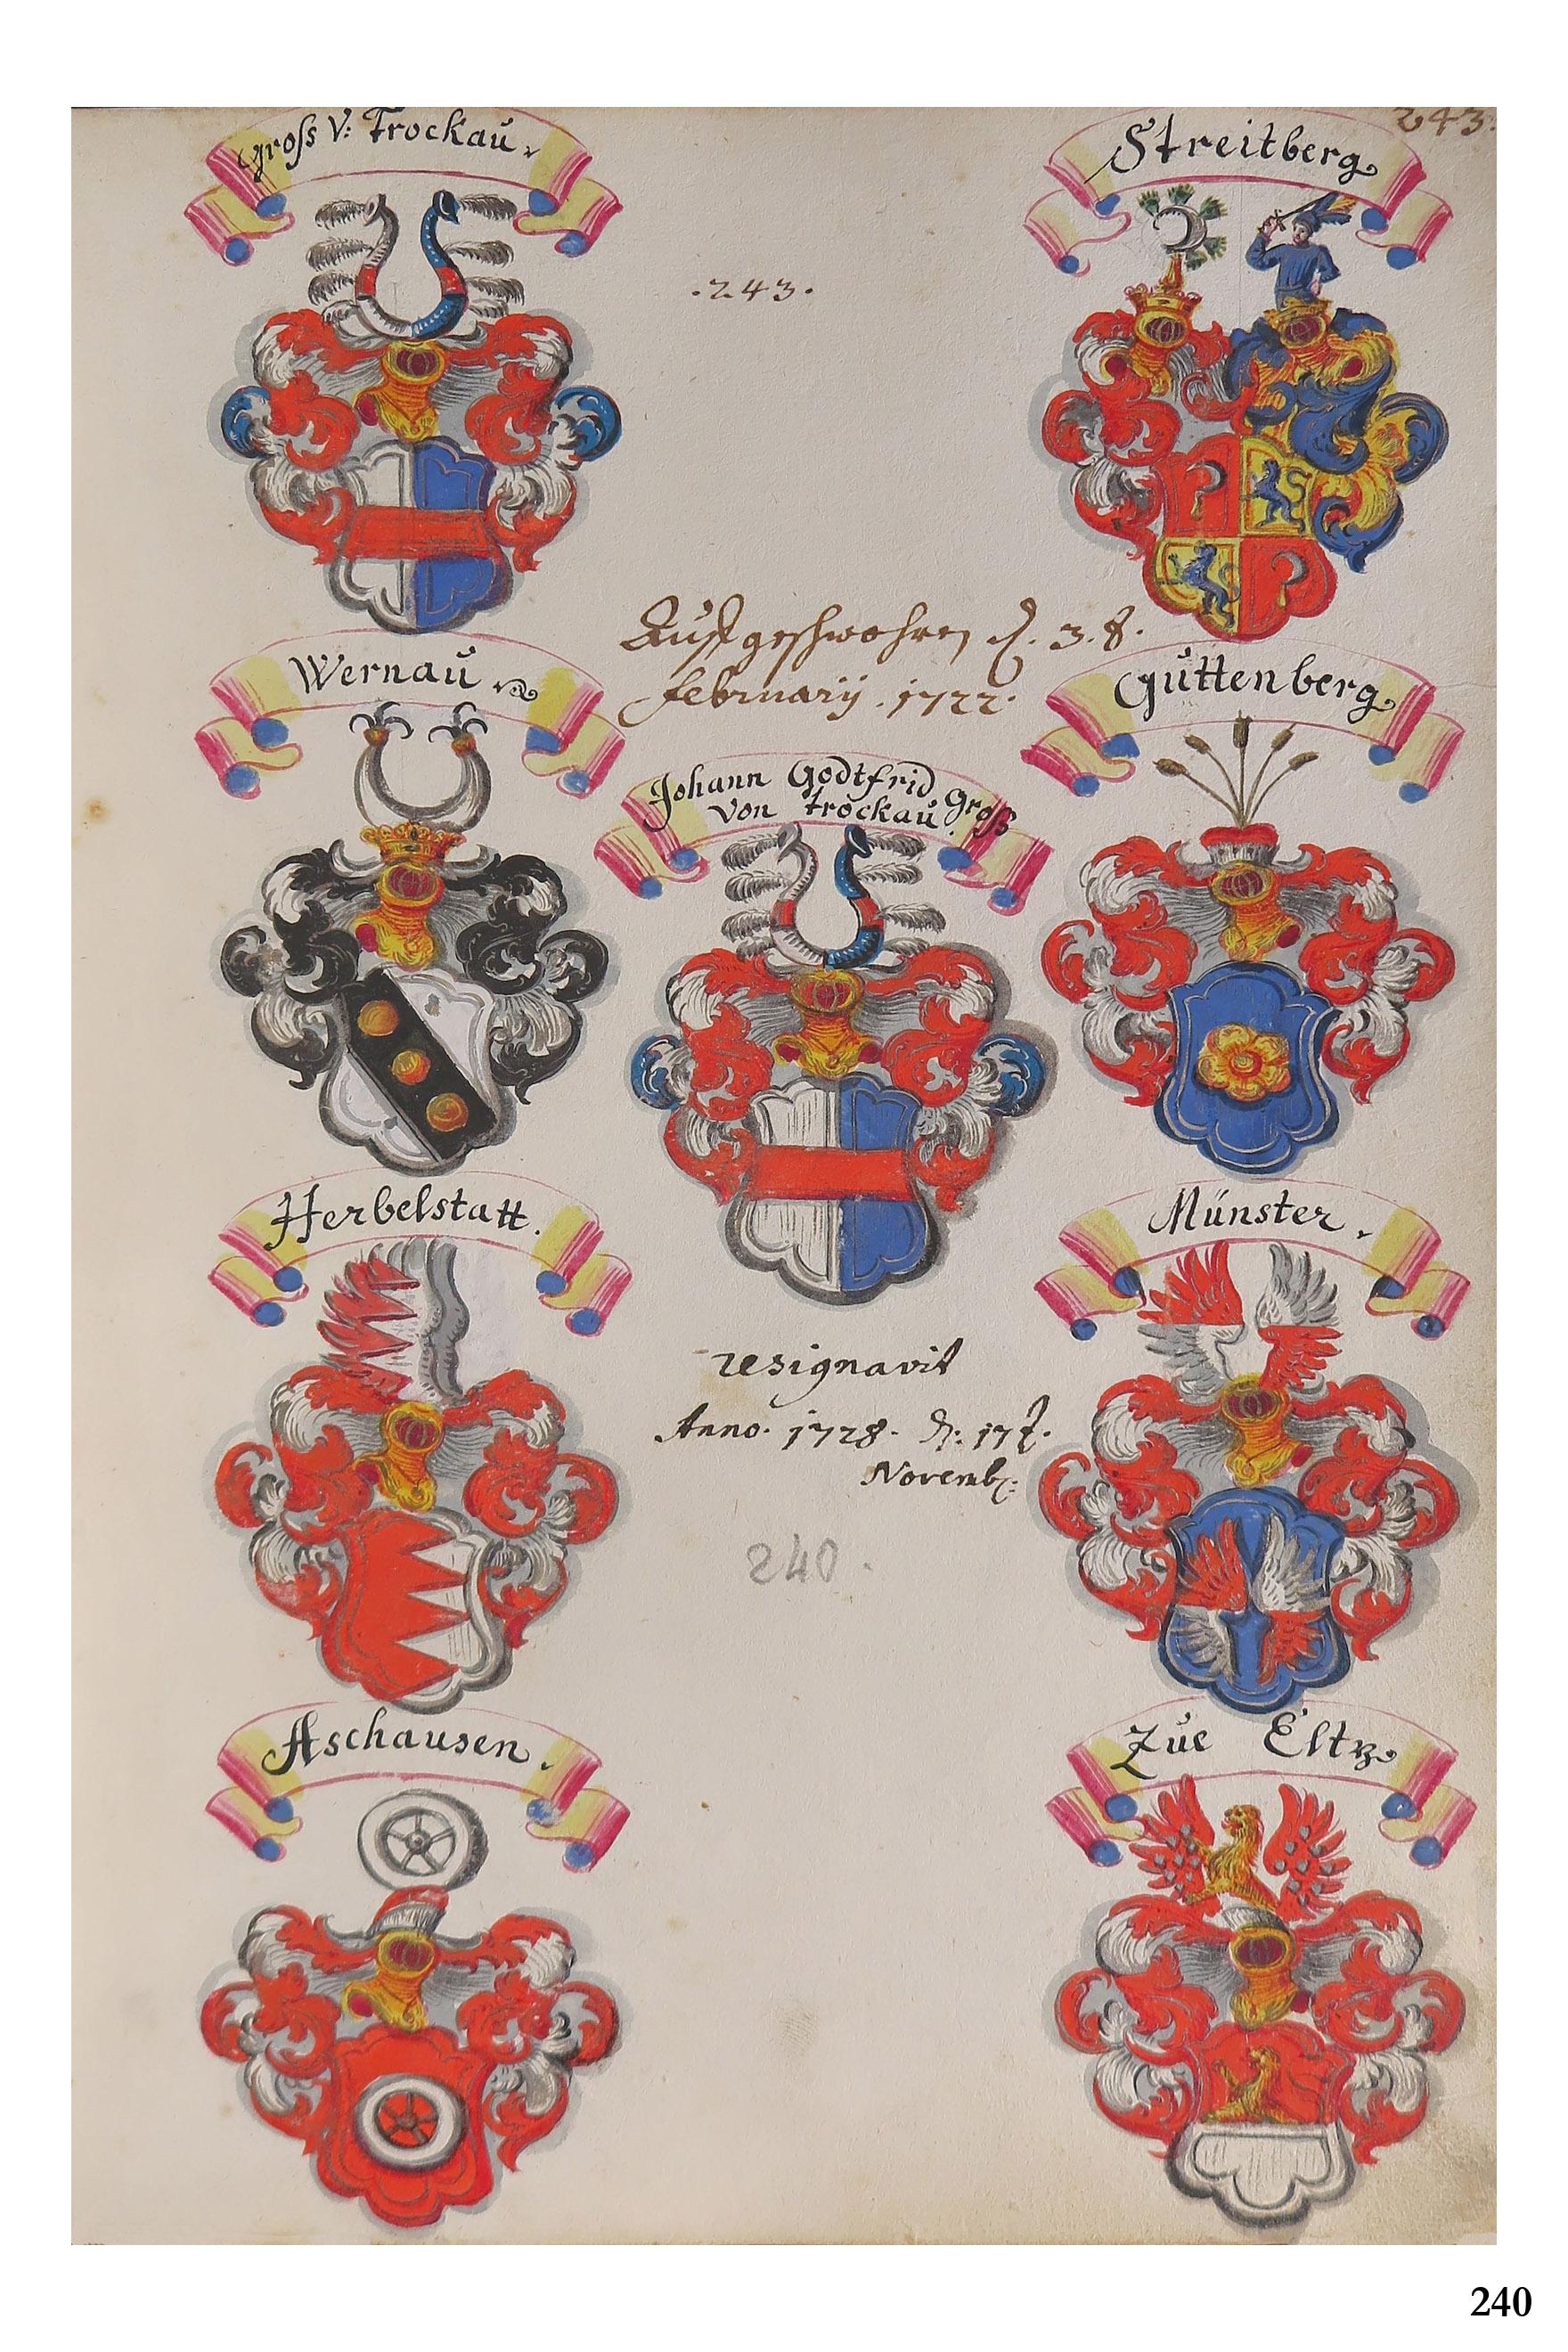 243.
Gross V: Trockau
Streitberg
.243.
Auffgeschwohren d. 3. 8.
february .1722.
Wernau
Guttenberg
Johann Godtfrid Gross
von trockau.
Herbelstatt.
Münster.
resignavit
Anno. 1728. d: 17t.
Novemb:
240.
Aschausen.
Zue Eltz
240